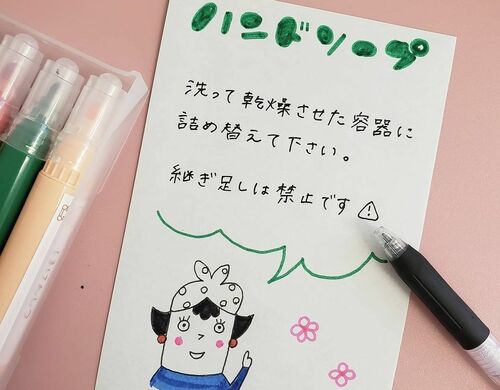 ハンドソープ
洗って乾燥させた容器に
詰め替えて下さい。
継ぎ足しは禁止です⚠